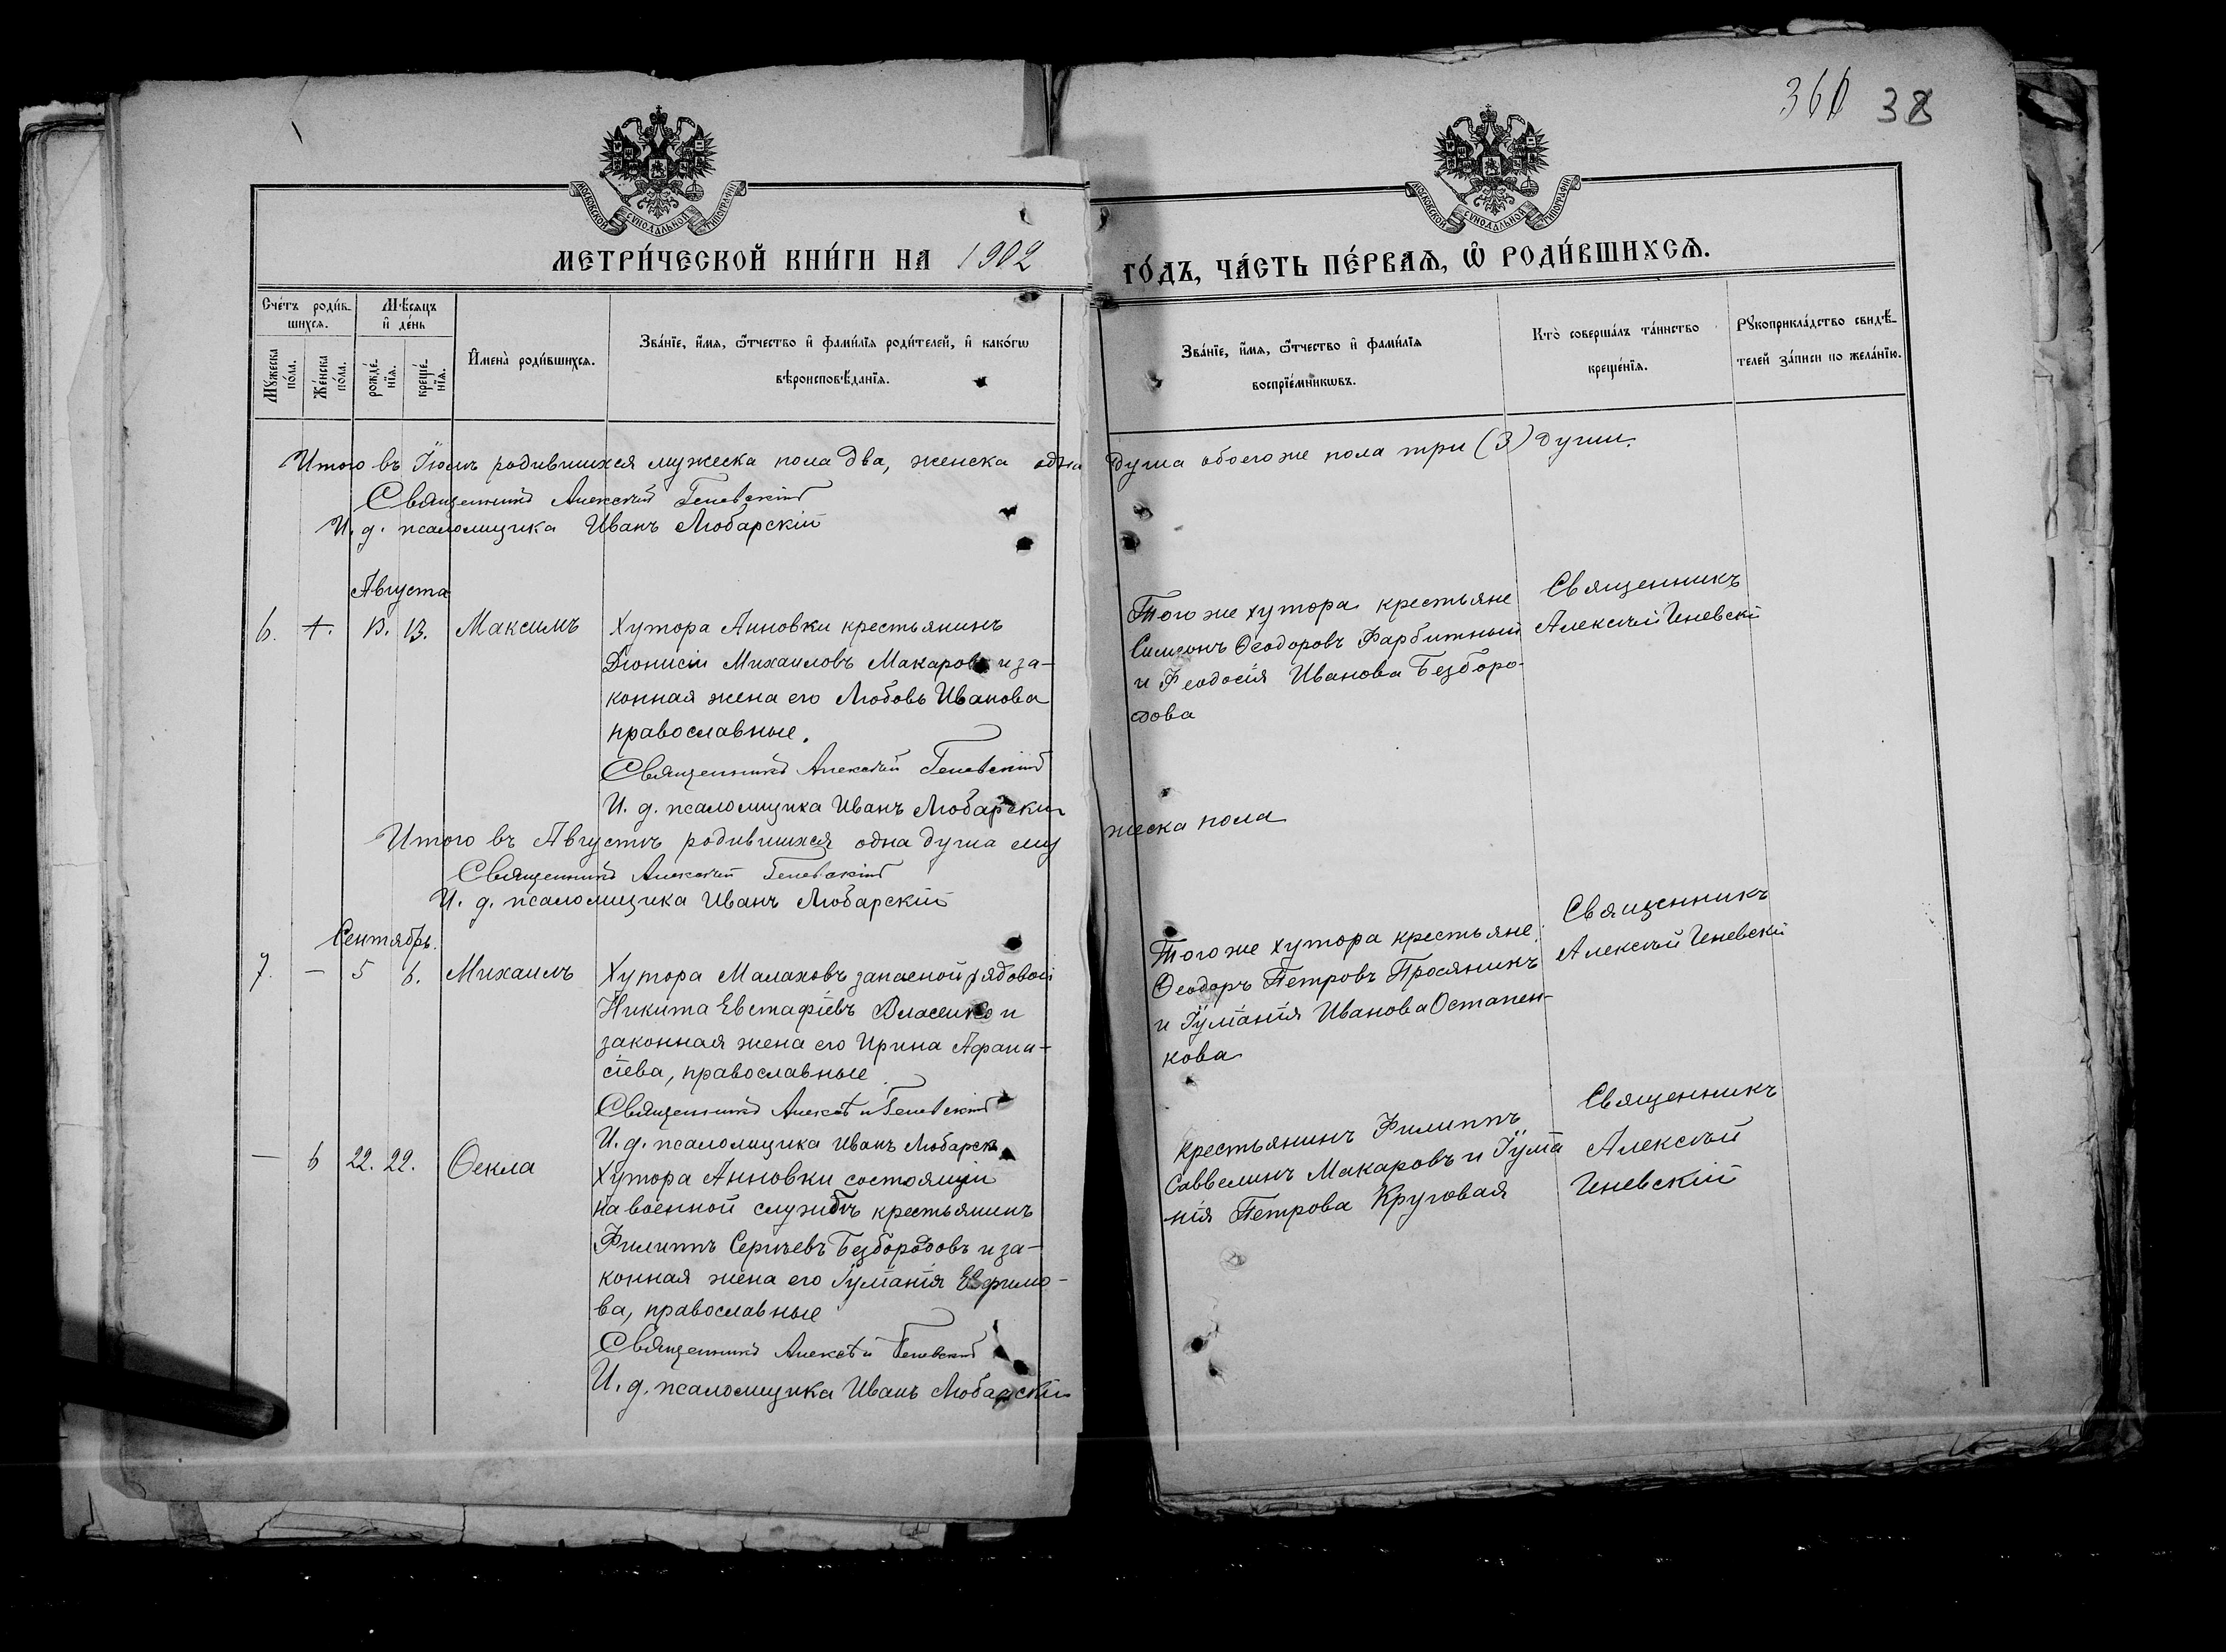 360 38
МОСКОВСКОЙ СѴНОДАЛЬНОЙ ТИПОГРАФІИ
МОСКОВСКОЙ СѴНОДАЛЬНОЙ ТИПОГРАФІИ
МЕТРИ́ЧЕСКОЙ КНИ́ГИ НА 1902
ГО́ДЪ, ЧА́СТЬ ПЕ́РВАѦ, Ѽ РОДИ́ВШИХСѦ.
Сче́тъ роди́в-
шихсѧ.
Мѣ́сѧцъ
и҆ де́нь
Мꙋ́жеска
по́ла.
Же́нска
по́ла.
рожде́-
нїѧ.
креще́-
нїѧ.
И҆мена̀ роди́вшихсѧ.
Зва́нїе, и҆́мѧ, ѻ҆́тчество и҆ фами́лїѧ роди́телей, и҆ како́гѡ
вѣроисповѣ́данїѧ.
Зва́нїе, и҆́мѧ, ѻ҆́тчество и҆ фами́лїѧ
воспрїе́мникѡвъ.
Кто̀ соверша́лъ та́инство
креще́нїѧ.
Рꙋкоприкла́дство свидѣ́-
телей за́писи по жела́нїю.
Итого въ Іюлѣ родившихся мужеска пола два, женска одна
душа обоего же пола три (3) души.
Священникъ Алексѣй Геневскій
И. д. псаломщика Иванъ Любарскій
Августа
6. 13. Максимъ
Хутора Анновки крестьянинъ
Діонисій Михаиловъ Макаровъ и за-
конная жена его Любовь Иванова
православные.
Священникъ Алексѣй Геневскій
И. д. псаломщика Иванъ Любарскій
Того же хутора крестьяне
Симеонъ Ѳеодоровъ Фарбитный
и Феодосія Иванова Безборо-
дова
Священникъ
Алексѣй Геневскі
Итого въ Августѣ родившихся одна душа му
жеска пола
Священникъ Алексѣй Геневскій
И. д. псаломщика Иванъ Любарскій
Сентябрь.
7. — 5 6. Михаилъ
Хутора Малаховъ запасной рядовой
Никита Евстафіевъ Власенко и
законная жена его Ирина Афана-
сіева, православные
Священникъ Алексѣй Геневскій
И. д. псаломщика Иванъ Любарск
Того же хутора крестьяне:
Ѳеодоръ Петровъ Просяникъ
и Іуліанія Иванова Остапен-
кова
Священникъ
Алексѣй Геневскій
— 6 22. 22. Ѳекла
Хутора Анновки состоящій
на военной службѣ крестьянинъ
Филиппъ Сергѣевъ Безбородовъ и за-
конная жена его Іуліанія Евфимо-
ва, православные
Священникъ Алексѣй Геневскій
И. д. псаломщика Иванъ Любарскій
крестьянинъ Филиппъ
Саввелинъ Макаровъ и Іуліа
нія Петрова Круговая
Священникъ
Алексѣй
Геневскій